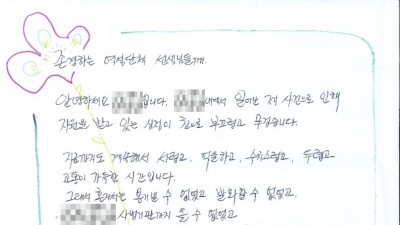 존경하는 여성단체 선생님들께.
안녕하세요 입니다. 내에서 일어난 제 사건으로 인해
지원을 받고 있는 심정이 참으로 부끄럽고 무겁습니다.
지금까지도 계속해서 서럽고, 억울하고, 수치스럽고, 두렵고
고통이 가득한 시간입니다.
그래서 혼자서는 용기낼 수 없었고 발화할 수 없었고,
사법기관까지 올 수 없었고